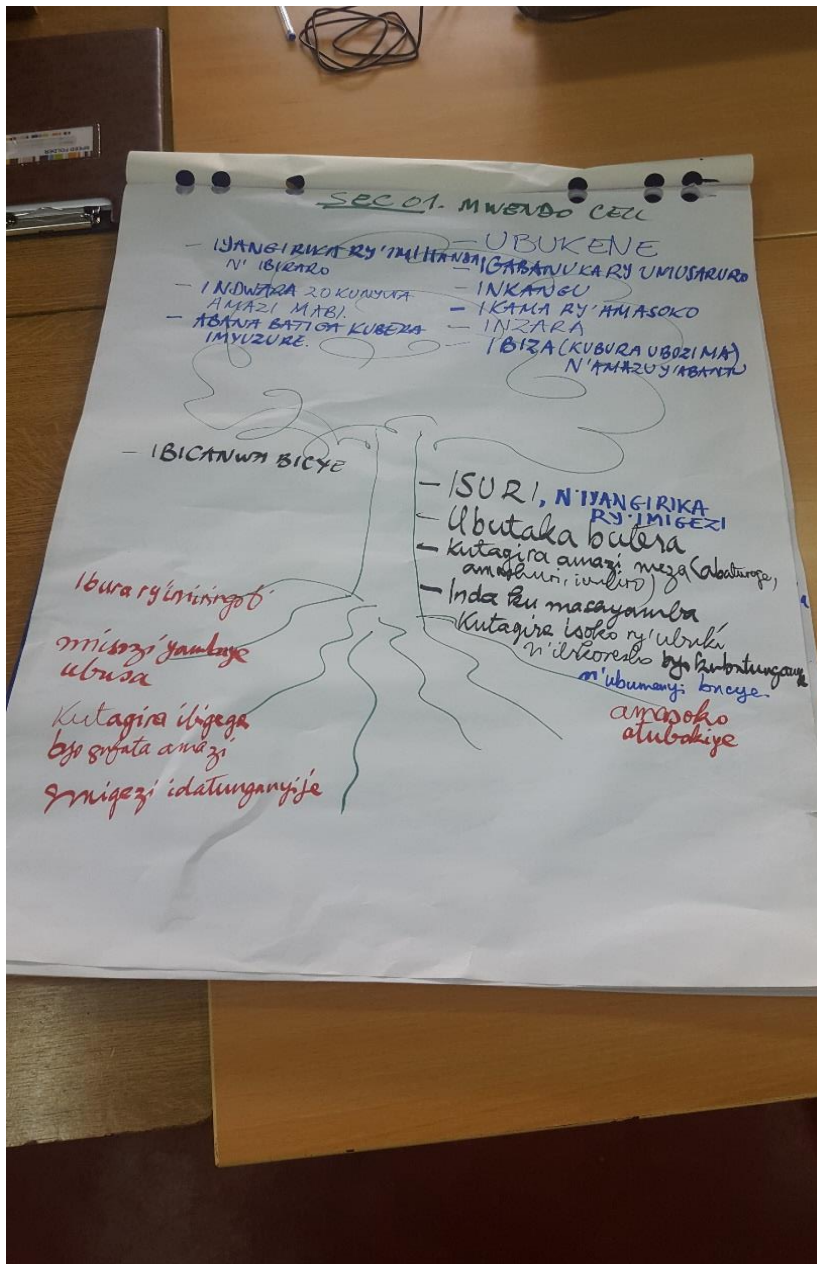 SEC 01. MWENDO CELL
- IYANGIRIKA RY'IMIHANDA
N' IBIRARO
- INDWARA ZO KUNYWA
AMAZI MABI.
- ABANA BATIGA KUBERA
IMYUZURE.
- UBUKENE
- IGABANUKA RY'UMUSARURO
- INKANGU
- IKAMA RY'AMASOKO
- INZARA
- IBIZA (KUBURA UBUZIMA)
N'AMAZU Y'ABANTU
- IBICANWA BICYE
- ISURI, N'IYANGIRIKA
RY'IMIGEZI
- Ubutaka butera
- Kutagira amazi meza (abaturage,
amashuri,
- Inda ku masayamba
- Kutagira isoko ry'ubuki
n'ibikoresho byo
n'ubumenyi bucye.
Ibura ry'imiringoti
misozi yambaye
ubusa
Kutagira ibigega
byo gufata amazi
imigezi idatunganyije
amasoko
atubakiye